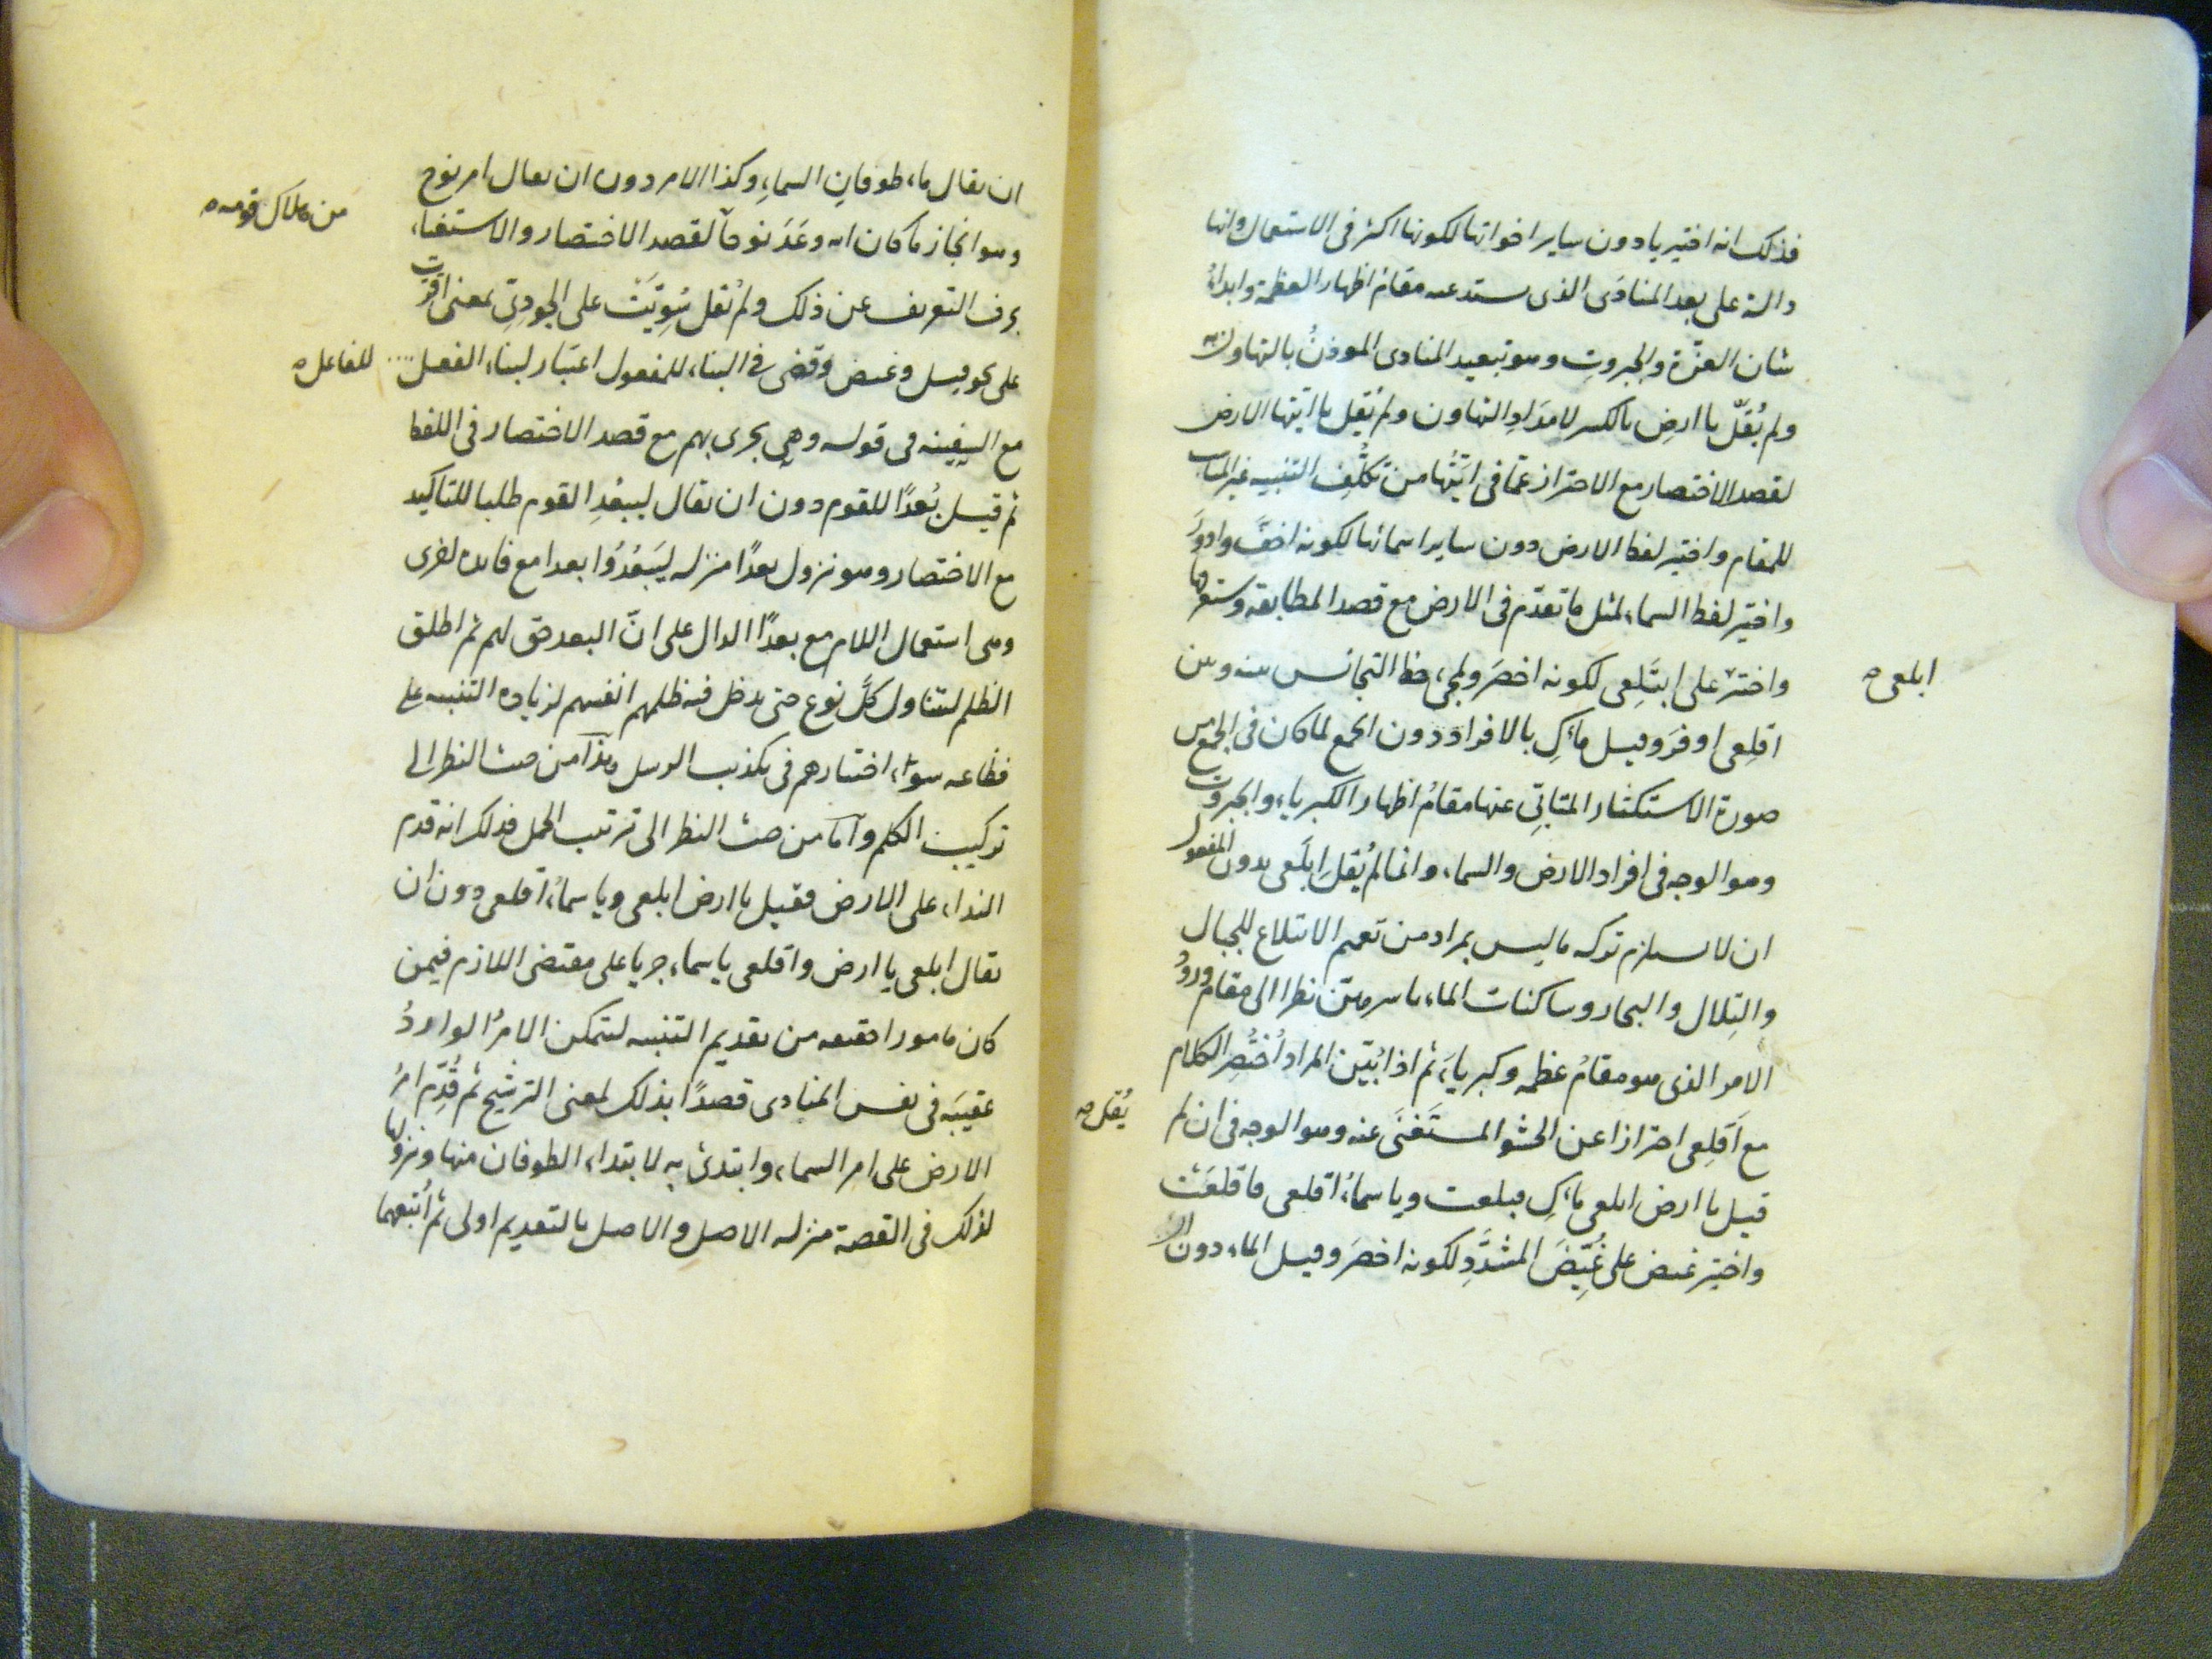 فذلك انه اختير يا دون ساير اخواتها لكونها اكثر فى الاستعمال وانها
دالة على بعد المنادَى الذى يستدعيه مقامُ اظهار العظمة وابداءُ
شان العزّة والجبروتِ وهو تبعيد المنادى الموذنُ بالتهاون به
ولم يُقَلْ يا ارضِ بالكسر لامدادِ التهاون ولم يُقل يا ايتها الارض
لقصد الاختصار مع الاحتراز عمّا فى ايَّتُها من تكلُّفِ التنبيه غير المناسب
للمقام واختير لفظ الارض دون ساير اسمائها لكونه اخفَّ وادورَ
واختير لفظ السماء لمثل ما تقدّم فى الارض مع قصد المطابقة وستعرفها
واختير على ابتَلِعى لكونه اخصرَ ولمجىء حظ التجانس بينه وبين
ابلعى صح
اقلِعى اوفرَ وقيل ماءَكِ بالافراد دون الجمع لما كان فى الجمع من
صورة الاستكثار المتأتى عنها مقامُ اظهار الكبرياء والجبروت
وهو الوجه فى افراد الارض والسماء وانما لم يُقل ابلَعى بدون المفعول
ان لا يستلزم تركه ما ليس بمراد من تعميم الابتلاع للجبال
والتِلال والبحار وساكنات الماء باسرهنّ نظرا الى مقام ورودِ
الامر الذى هو مقامُ عظمة وكبرياءَ ثم اذا بُيّن المراد اُختُصِر الكلام
مع اَقلِعى احترازا عن الحشو المستَغنَى عنه وهو الوجه فى ان لم
يُقل صح
قيل يا ارض ابلعى ماءكِ فبلعت ويا سماءُ اقلعى فاقلعَتْ
واختير غيض على غُيِّضَ المشدَّدِ لكونه اخصرَ وقيل الماء دون ان
ان يقال ماء طوفانِ السماءِ وكذا الامر دون ان يقال امر نوح
وهو انجاز ما كان الله وَعَدَ نوحاً لقصد الاختصار والاستغناء
من هلاك قومه صح
بحرف التعريف عن ذلك ولم يُقل سُوِّيَتْ على الجودِىّ بمعنى اُقرّت
على نحو قيل وغيض وقضى فى البناء للمفعول اعتبار لبناء الفعل
للفاعل صح
مع السفينة فى قوله وهى تجرى بهم مع قصد الاختصار فى اللفظ
ثم قيل بُعدًا للقوم دون ان يقال ليبعُدِ القوم طلبا للتاكيد
مع الاختصار وهو نزول بعدًا منزلة ليَبعُدُوا بعدا مع فايدة اخرى
وهى استعمال اللام مع بعدًا الدال على انّ البعد حق لهم ثم اطلق
الظلم ليتناول كلَّ نوع حتى يدخل فيه ظلمهم انفسهم لزيادة التنبيه على
فظاعة سوء اختيارهم فى تكذيب الرسل هذا من حيث النظر الى
تركيب الكلم واما من حيث النظر الى ترتيب الجمل فذلك انه قدم
النداء على الارض فقيل يا ارض ابلعى ويا سماءُ اقلعى دون ان
يقال ابلعى يا ارض واقلعى يا سماء جريا على مقتضى اللازم فيمن
كان مامورا حقيقة من تقديم التنبيه ليتمكن الامرُ الواردُ
عقيبَه فى نفس المنادى قصدًا بذلك لمعنى الترشيح ثم قُدِّم امرُ
الارض على امر السماء وابتدئ به لابتداء الطوفان منها ونزولها
لذلك فى القصة منزلة الاصل والاصل بالتقديم اولى ثم اُتبعهما